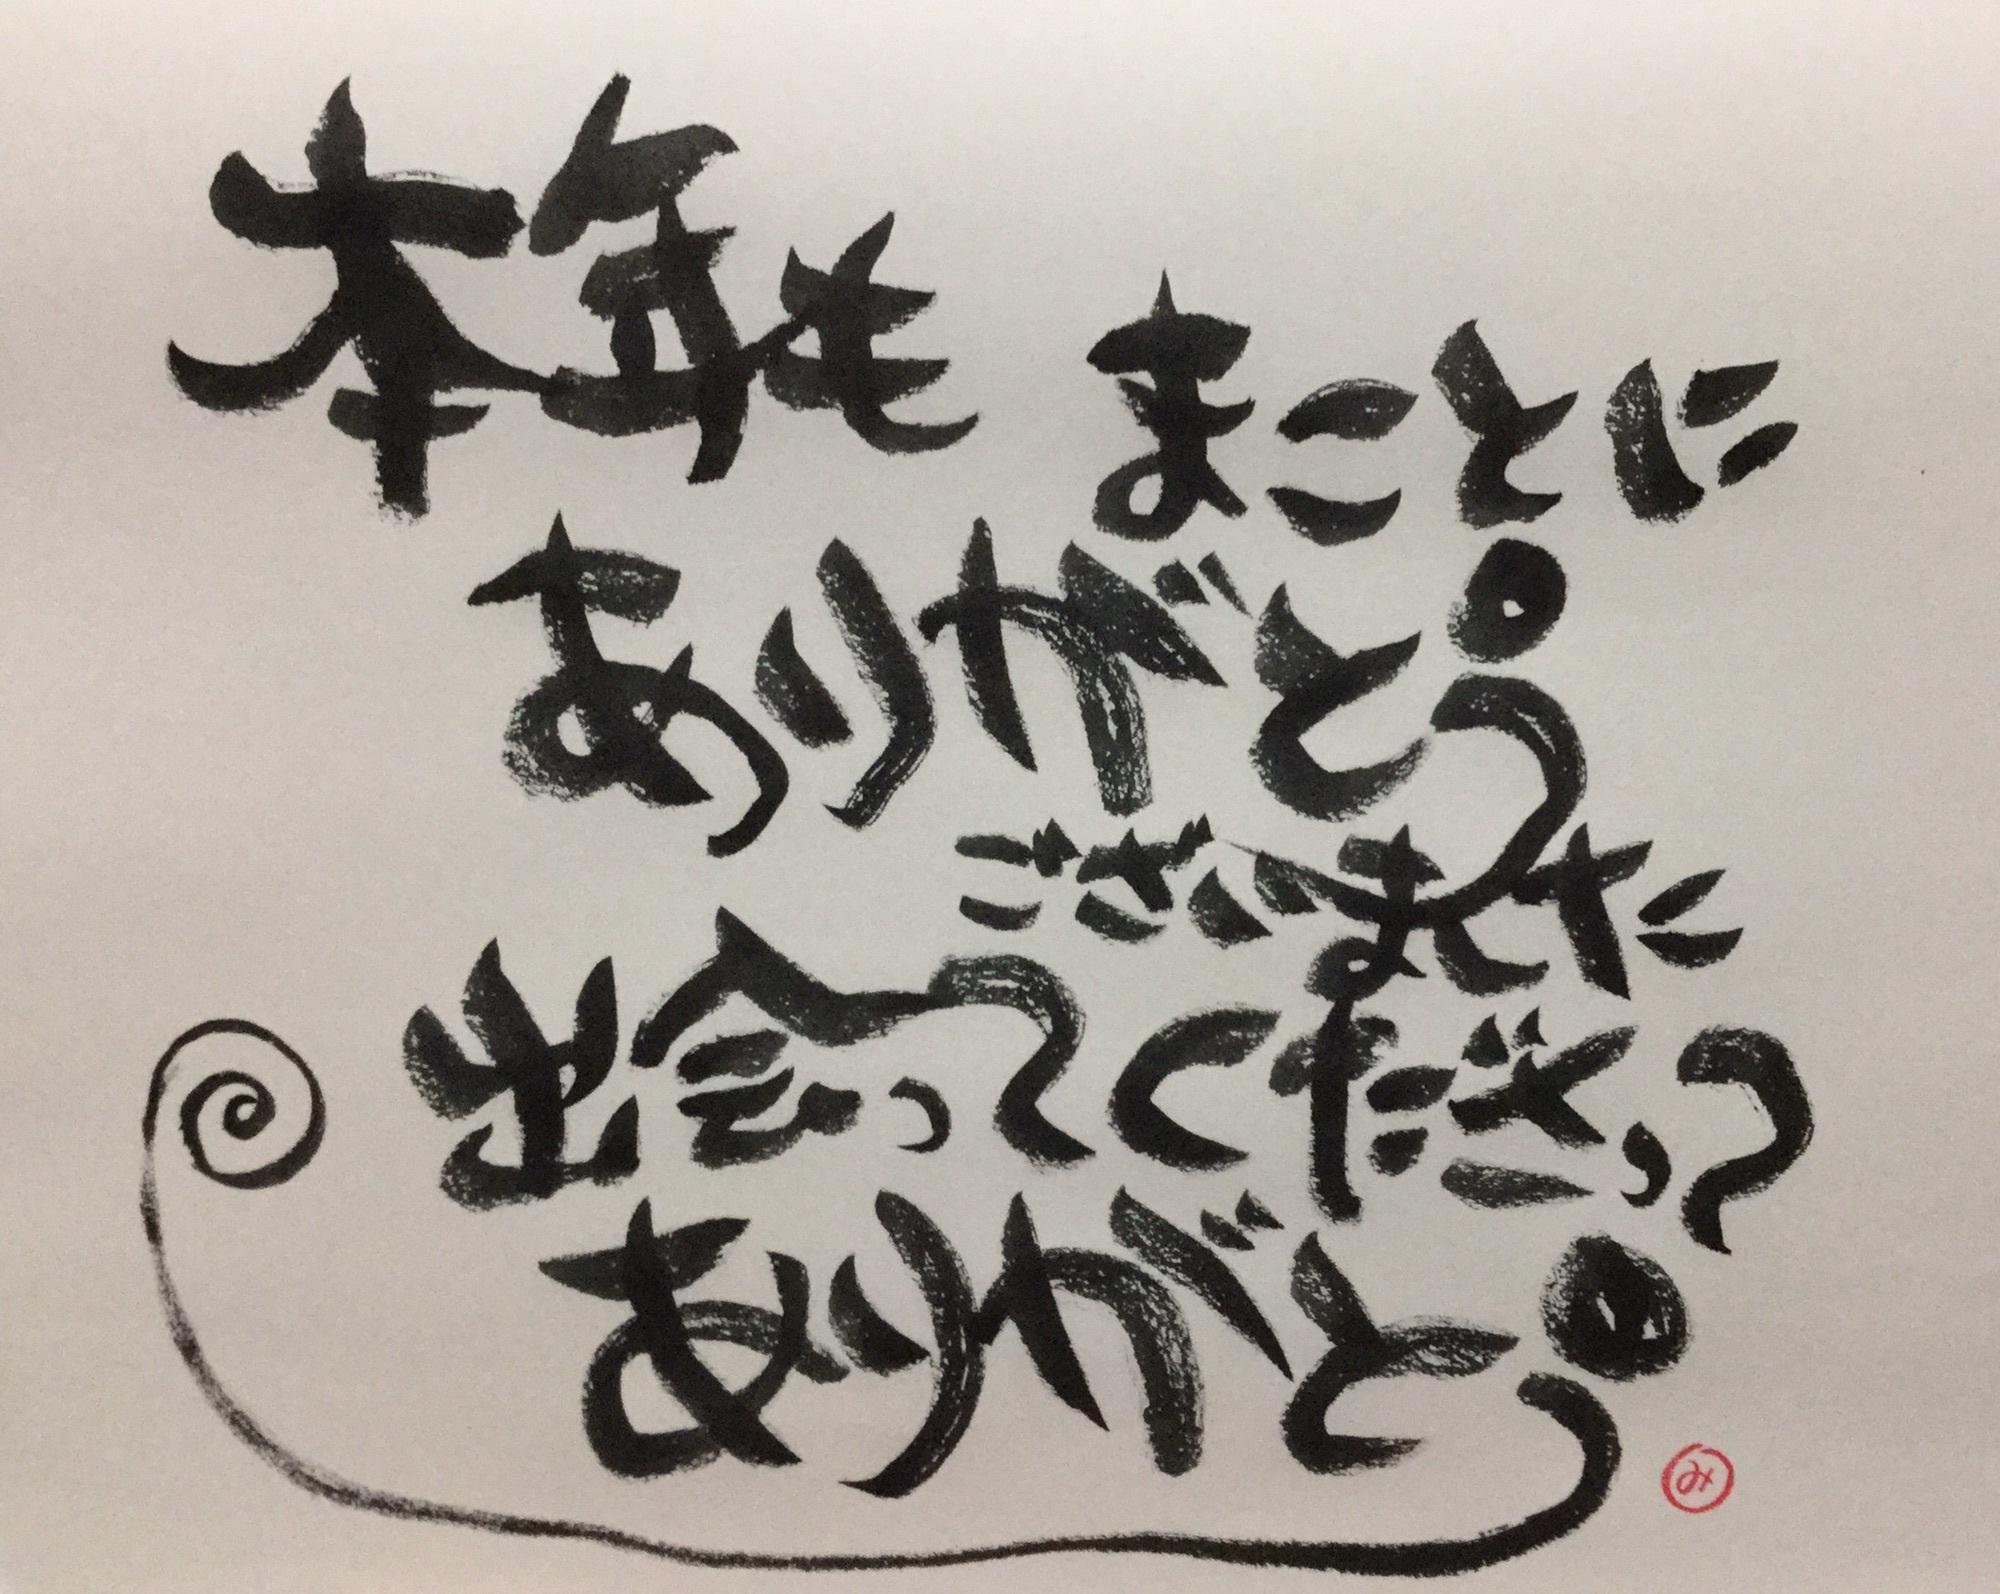 本年も まことに
ありがとう
ございました
出会ってくださって
ありがとう
み